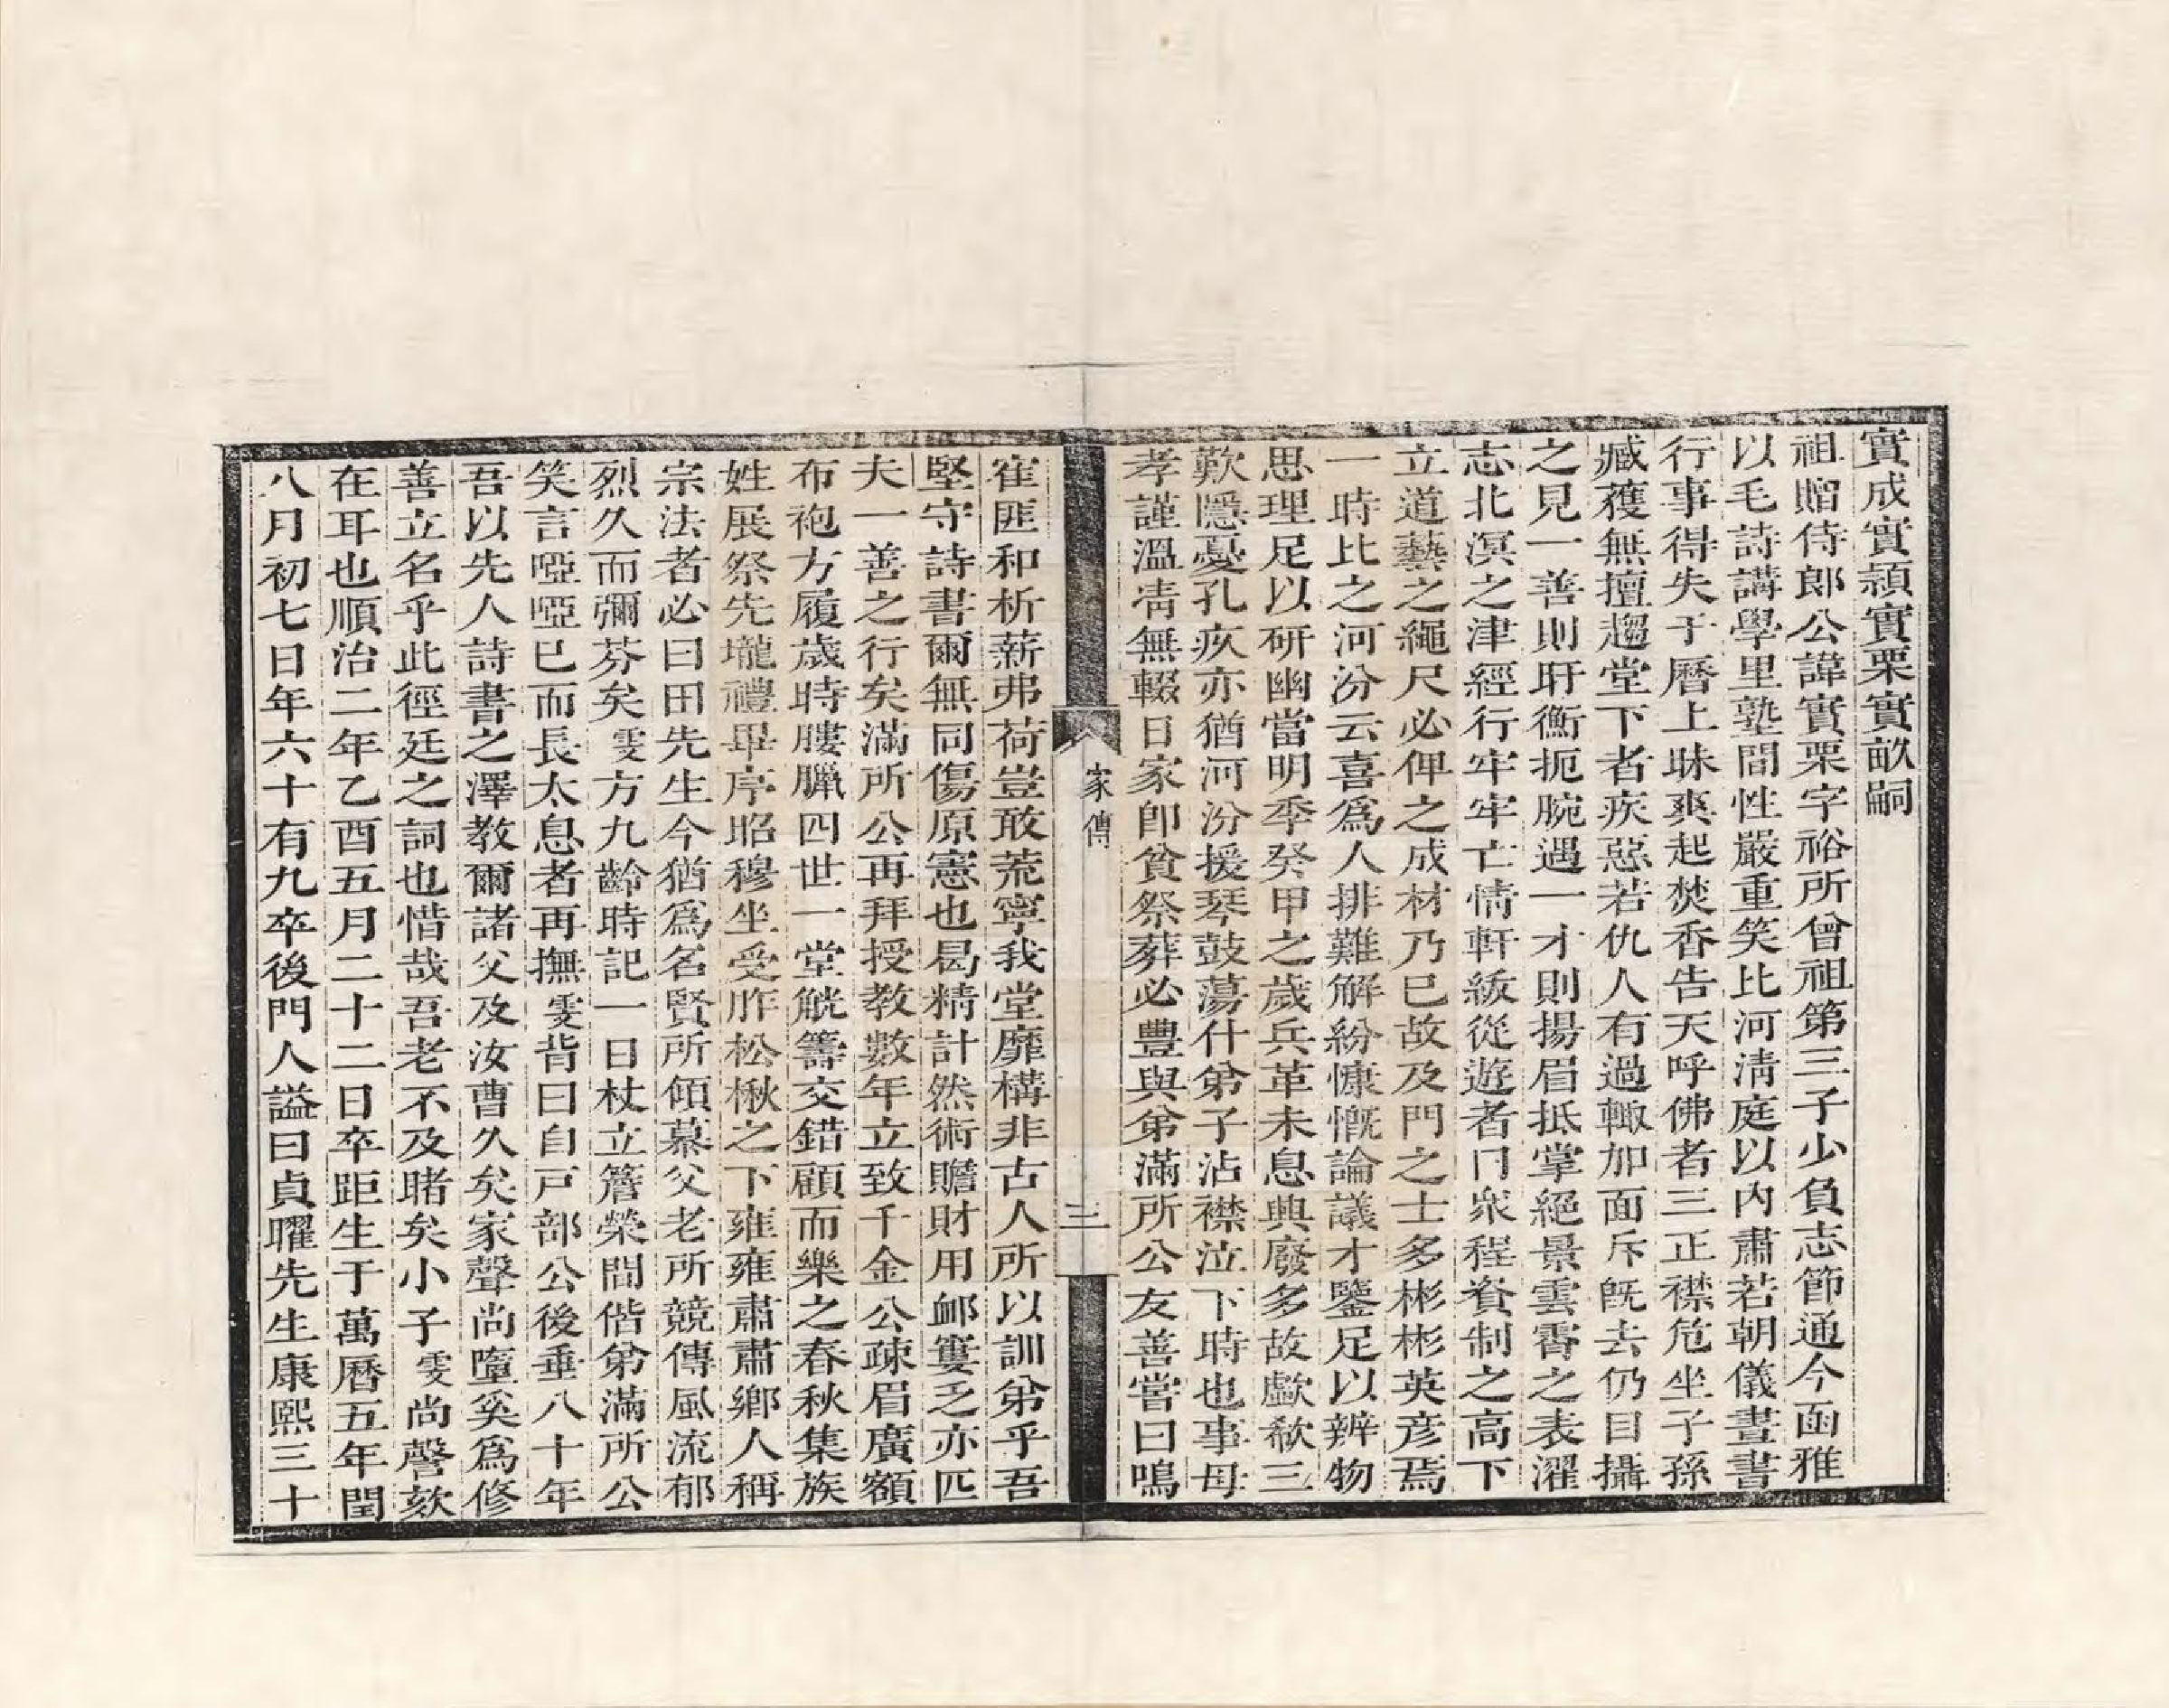 實成實穎實栗實畝嗣
祖贈侍郎公諱實栗字裕所曾祖第三子少負志節通今函雅
以毛詩講學里塾間性嚴重笑比河清庭以內肅若朝儀晝書
行事得失于曆上昧爽起焚香告天呼佛者三正襟危坐子孫
臧獲無擅趨堂下者疾惡若仇人有過輙加面斥旣去仍目攝
之見一善則盱衡扼腕遇一才則揚眉抵掌絕景雲霄之表濯
志北溟之津經行牢牢亡情軒紱從遊者日衆程資制之高下
立道藝之繩尺必俾之成材乃已故及門之士多彬彬英彥焉
一時比之河汾云喜爲人排難解紛慷慨論議才鑒足以辨物
思理足以研幽當明季癸甲之歲兵革未息興廢多故歔欷三
歎隱憂孔疚亦猶河汾援琴鼓蕩什弟子沾襟泣下時也事母
孝謹溫凊無輟日家卽貧祭葬必豐與弟滿所公友善嘗曰鳴
家傳
三
萑匪和析薪弗荷豈敢荒寧我堂靡構非古人所以訓弟乎吾
堅守詩書爾無同傷原憲也曷精計然術贍財用卹窶乏亦匹
夫一善之行矣滿所公再拜授教數年立致千金公疎眉廣額
布袍方履歲時膢臘四世一堂觥籌交錯顧而樂之春秋集族
姓展祭先壠禮畢序昭穆坐受胙松楸之下雍雍肅肅鄉人稱
宗法者必曰田先生今猶爲名賢所傾慕父老所競傳風流郁
烈久而彌芬矣雯方九齡時記一日杖立簷榮間偕弟滿所公
笑言啞啞已而長太息者再撫雯背曰自戸部公後垂八十年
吾以先人詩書之澤教爾諸父及汝曹久矣家聲尚墮奚爲修
善立名乎此徑廷之詞也惜哉吾老不及睹矣小子雯尚謦欬
在耳也順治二年乙酉五月二十二日卒距生于萬曆五年閏
八月初七日年六十有九卒後門人謚曰貞曜先生康熙三十